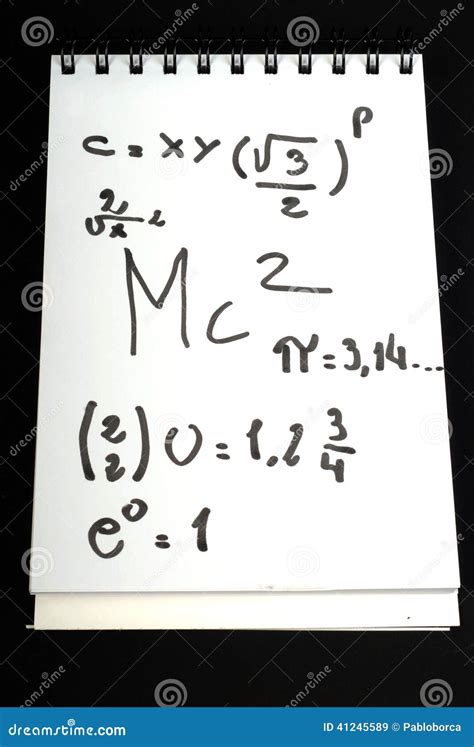 c = xy (√3/2)^p
2/√x 2
Mc 2
π = 3,14...
(2 2) U = 1,2 3/4
e^0 = 1
dreamstime
ID 41245589 © Pabloborca